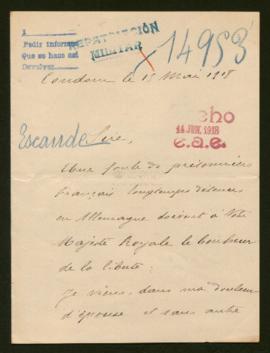 1
Pedir informes
Que se haga así
Devolver
REPATRIACIÓN
MILITAR
14953
Condom le 15 Mai 1918
cho
14 JUN. 1918
e.a.e.
Escande
Sire,
Une foule de prisonniers
français longtemps détenus
en Allemagne doivent à Votre
Majesté Royale le bonheur
de la liberté.
Je viens, dans ma douleur
d'épouse et sans autre